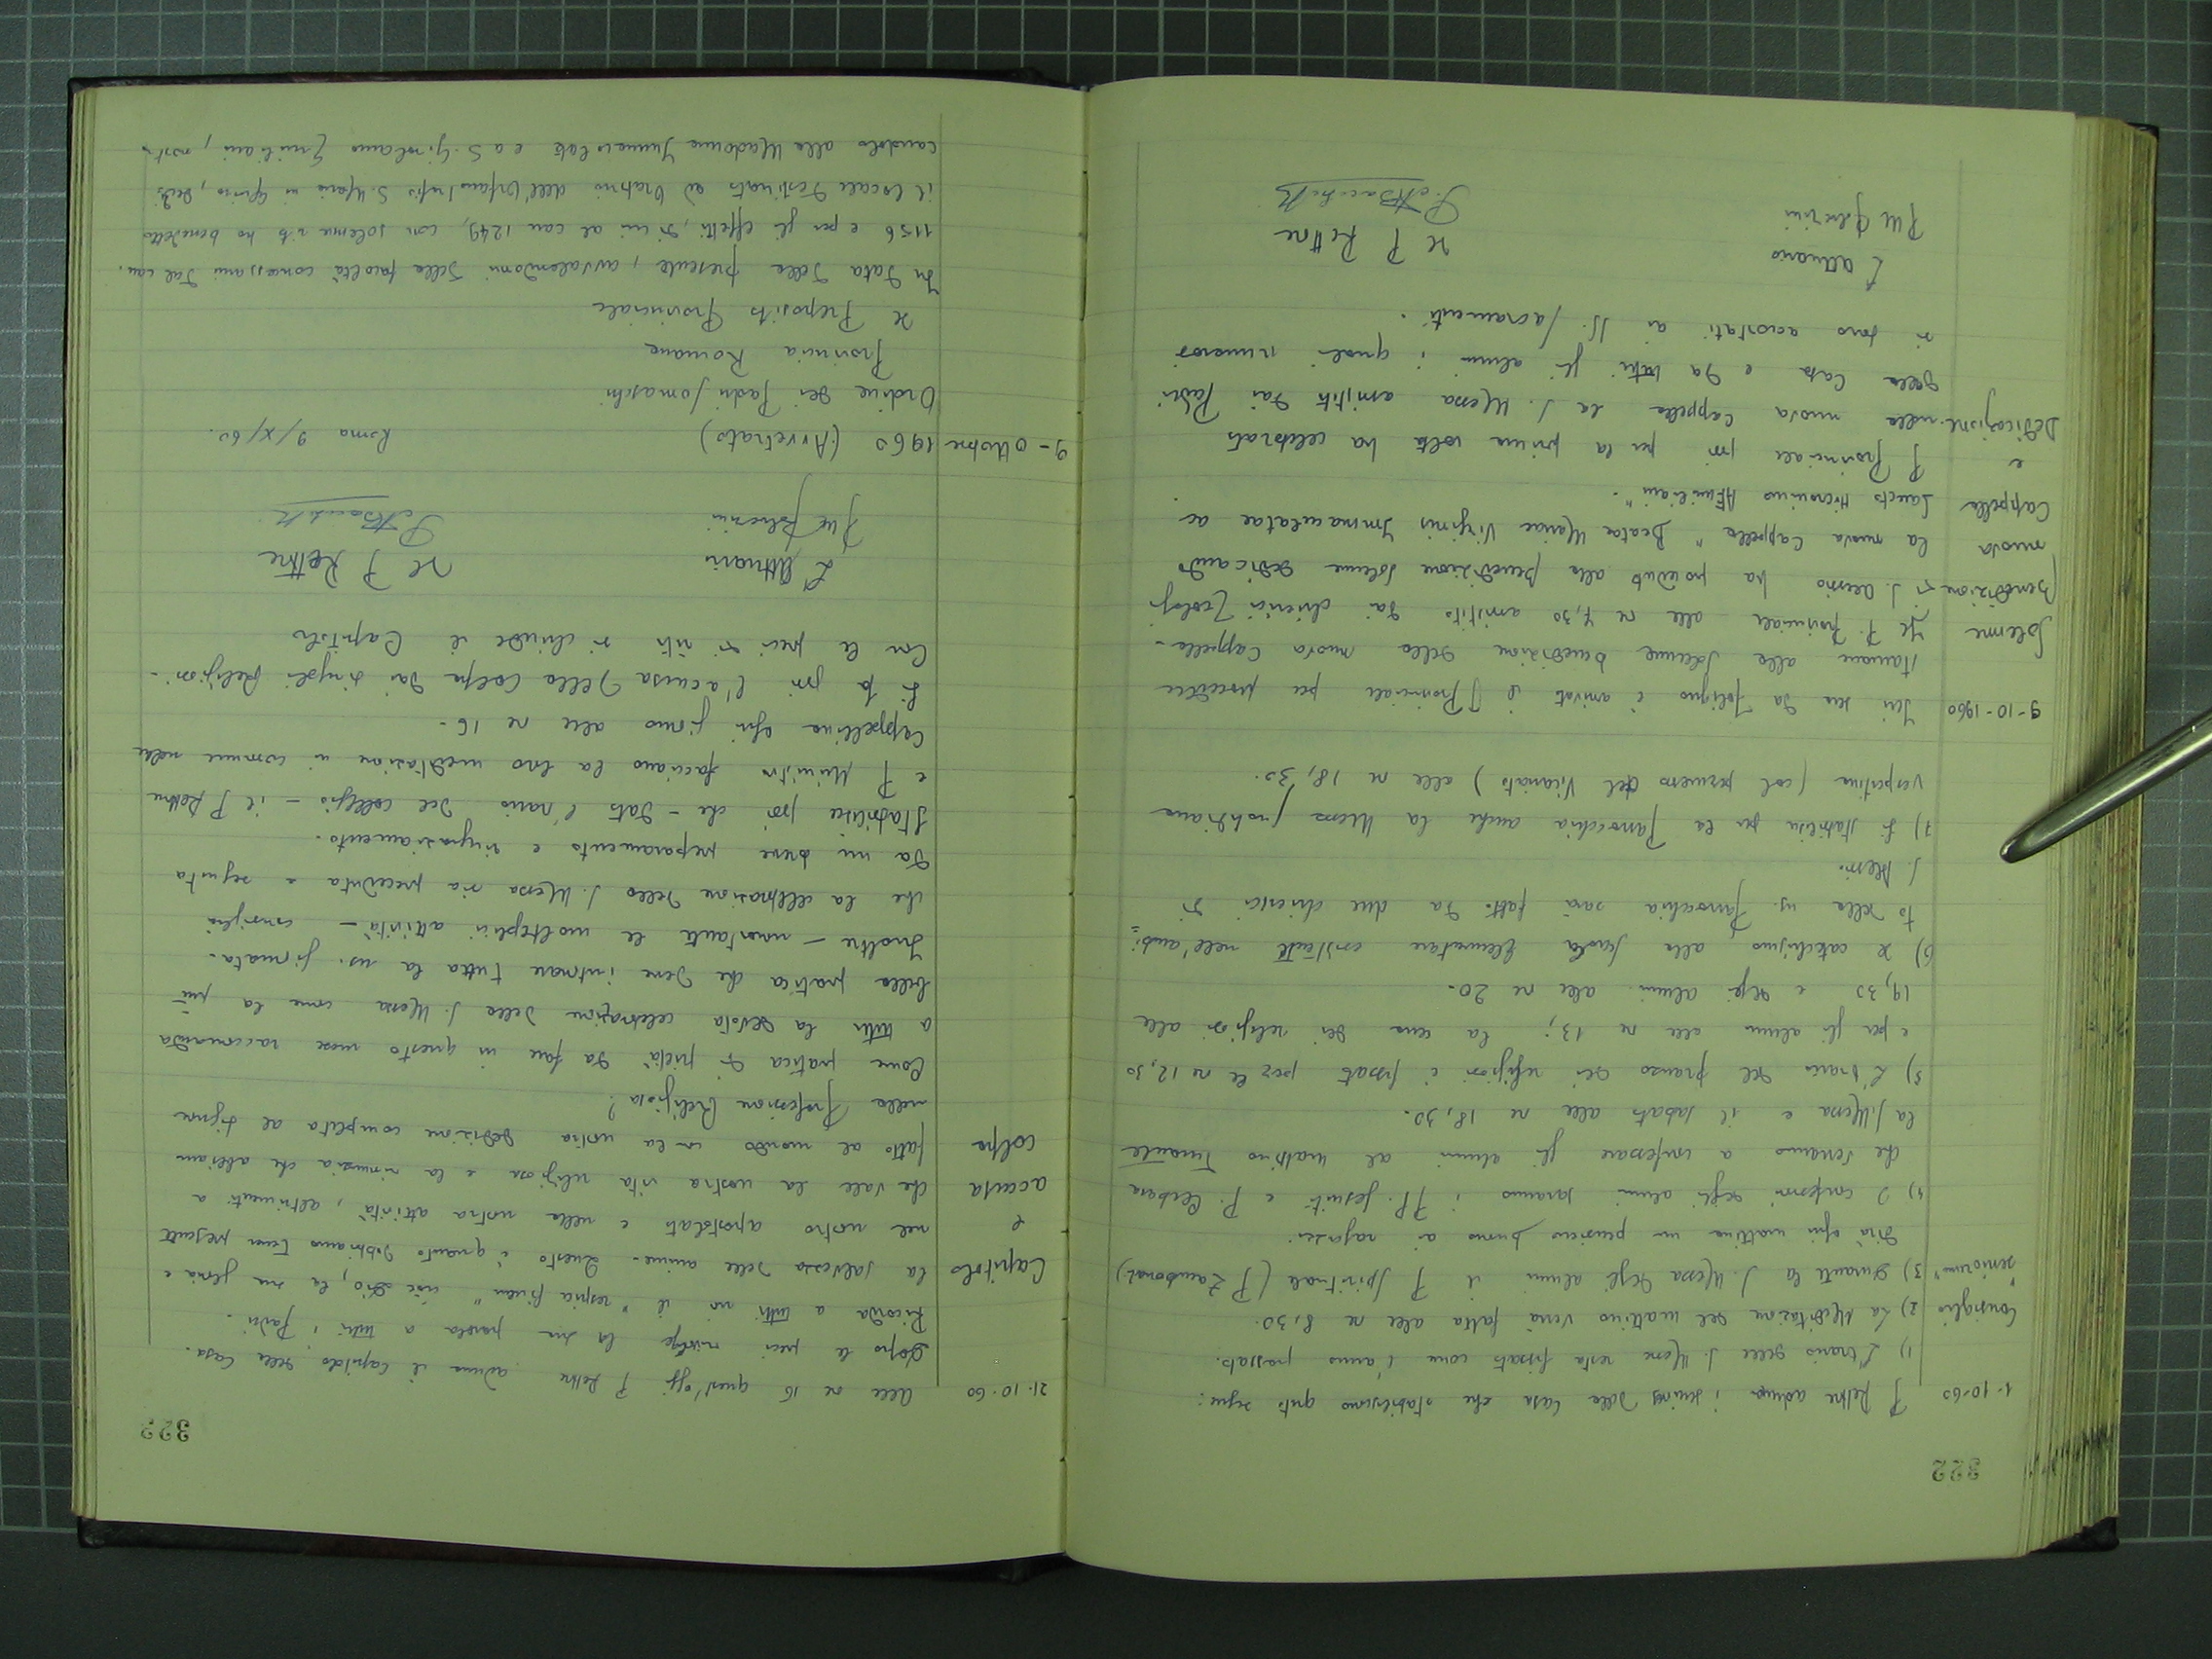 322
1-10-60 P. Rettore aduna i seniori della Casa che stabiliscono qnto segue:
1) L'orario delle S. Messe resta fissato come l'anno passato.
Consiglio 2) La Meditazione del mattino verrà fatta alle re 8,30.
"seniorum" 3) Durante la S. Messa degli alunni il P. Spirituale (P. Zambonati)
dirà ogni mattina un pensierino buono ai ragazzi.
4) I confessori degli alunni saranno i PP. Gesuiti e P.
che verranno a confessare gli alunni al mattino durante
la S. Messa e il sabato alle re 18,30.
5) L'orario del pranzo dei religiosi è fissato per le re 12,30
e per gli alunni alle re 13; la cena dei religiosi alle
19,30 e degli alunni alle re 20.
6) Il catechismo alla scuola Elementare esistente nell'ambi=
to della ns. Parrocchia sarà fatto da due chierici di
S. Alessio.
7) Si stabilisce per la Parrocchia anche la Messa quotidiana
vespertina (col permesso del Vicariato) alle re 18,30.
9-10-1960 Ieri sera da Foligno è arrivato il P. Provinciale per procedere
stamane alla solenne benedizione della nuova Cappella.
Solenne Il P. Provinciale alle re 7,30 assistito dai chierici Teologi
Benedizione di S. Alessio ha proceduto alla benedizione solenne dedicando
nuova la nuova Cappella "Beatae Mariae Virginis Immaculatae ac
Cappella Sancto Hieronimo AEmiliani".
e P. Provinciale poi per la prima volta ha celebrato
Dedicazione. nella nuova Cappella la S. Messa assistito dai Padri
della Casa e da tutti gli alunni i quali numerosi
si sono accostati ai SS. Sacramenti.
L'attuario Il P. Rettore
322
21-10-60 Alle re 16 quest'oggi P. Rettore aduna il Capitolo della Casa.
Dopo le preci rivolge la sua parola a tutti i Padri.
Ricorda a tutti noi il "respice finem" cioè Dio, la sua gloria e
Capitolo la salvezza delle anime. Questo è quanto dobbiamo tener presente
e nel nostro apostolato e nella nostra attività, altrimenti a
accusa che vale la nostra vita religiosa e la rinunzia che abbiamo
colpe fatto al mondo con la nostra dedizione completa al Signore
nella Professione Religiosa?
Come pratica di pietà da fare in questo mese raccomanda
a tutti la devota celebrazione della S. Messa come la più
bella pratica che deve informare tutta la ns. giornata.
Inoltre – nonostante le molteplici attività – consiglia
che la celebrazione della S. Messa sia preceduta e seguita
da un breve preparamento e ringraziamento.
Stabilisce poi che – dato l'orario del collegio – il P. Rettore
e P. Ministro facciano la loro meditazione in comune nella
Cappellina ogni giorno alle re 16.
Si fa poi l'accusa della Colpa dai singoli Religiosi.
Con le preci di rito si chiude il Capitolo
L'Attuario Il P. Rettore
9-Ottobre 1960 (Arretrato) Roma 9/X/60.
Ordine dei Padri Somaschi
Provincia Romana
Il Preposito Provinciale
In data della presente, avvalendomi della facoltà concessami dal can.
1156 e per gli effetti, di cui al can 1249, con solenne rito ho benedetto
il locale destinato ad Oratorio dell'Orfanotrofio S. Maria in Aquiro, dedi
candolo alla Madonna Immacolata e a S. Girolamo Emiliani, nostro